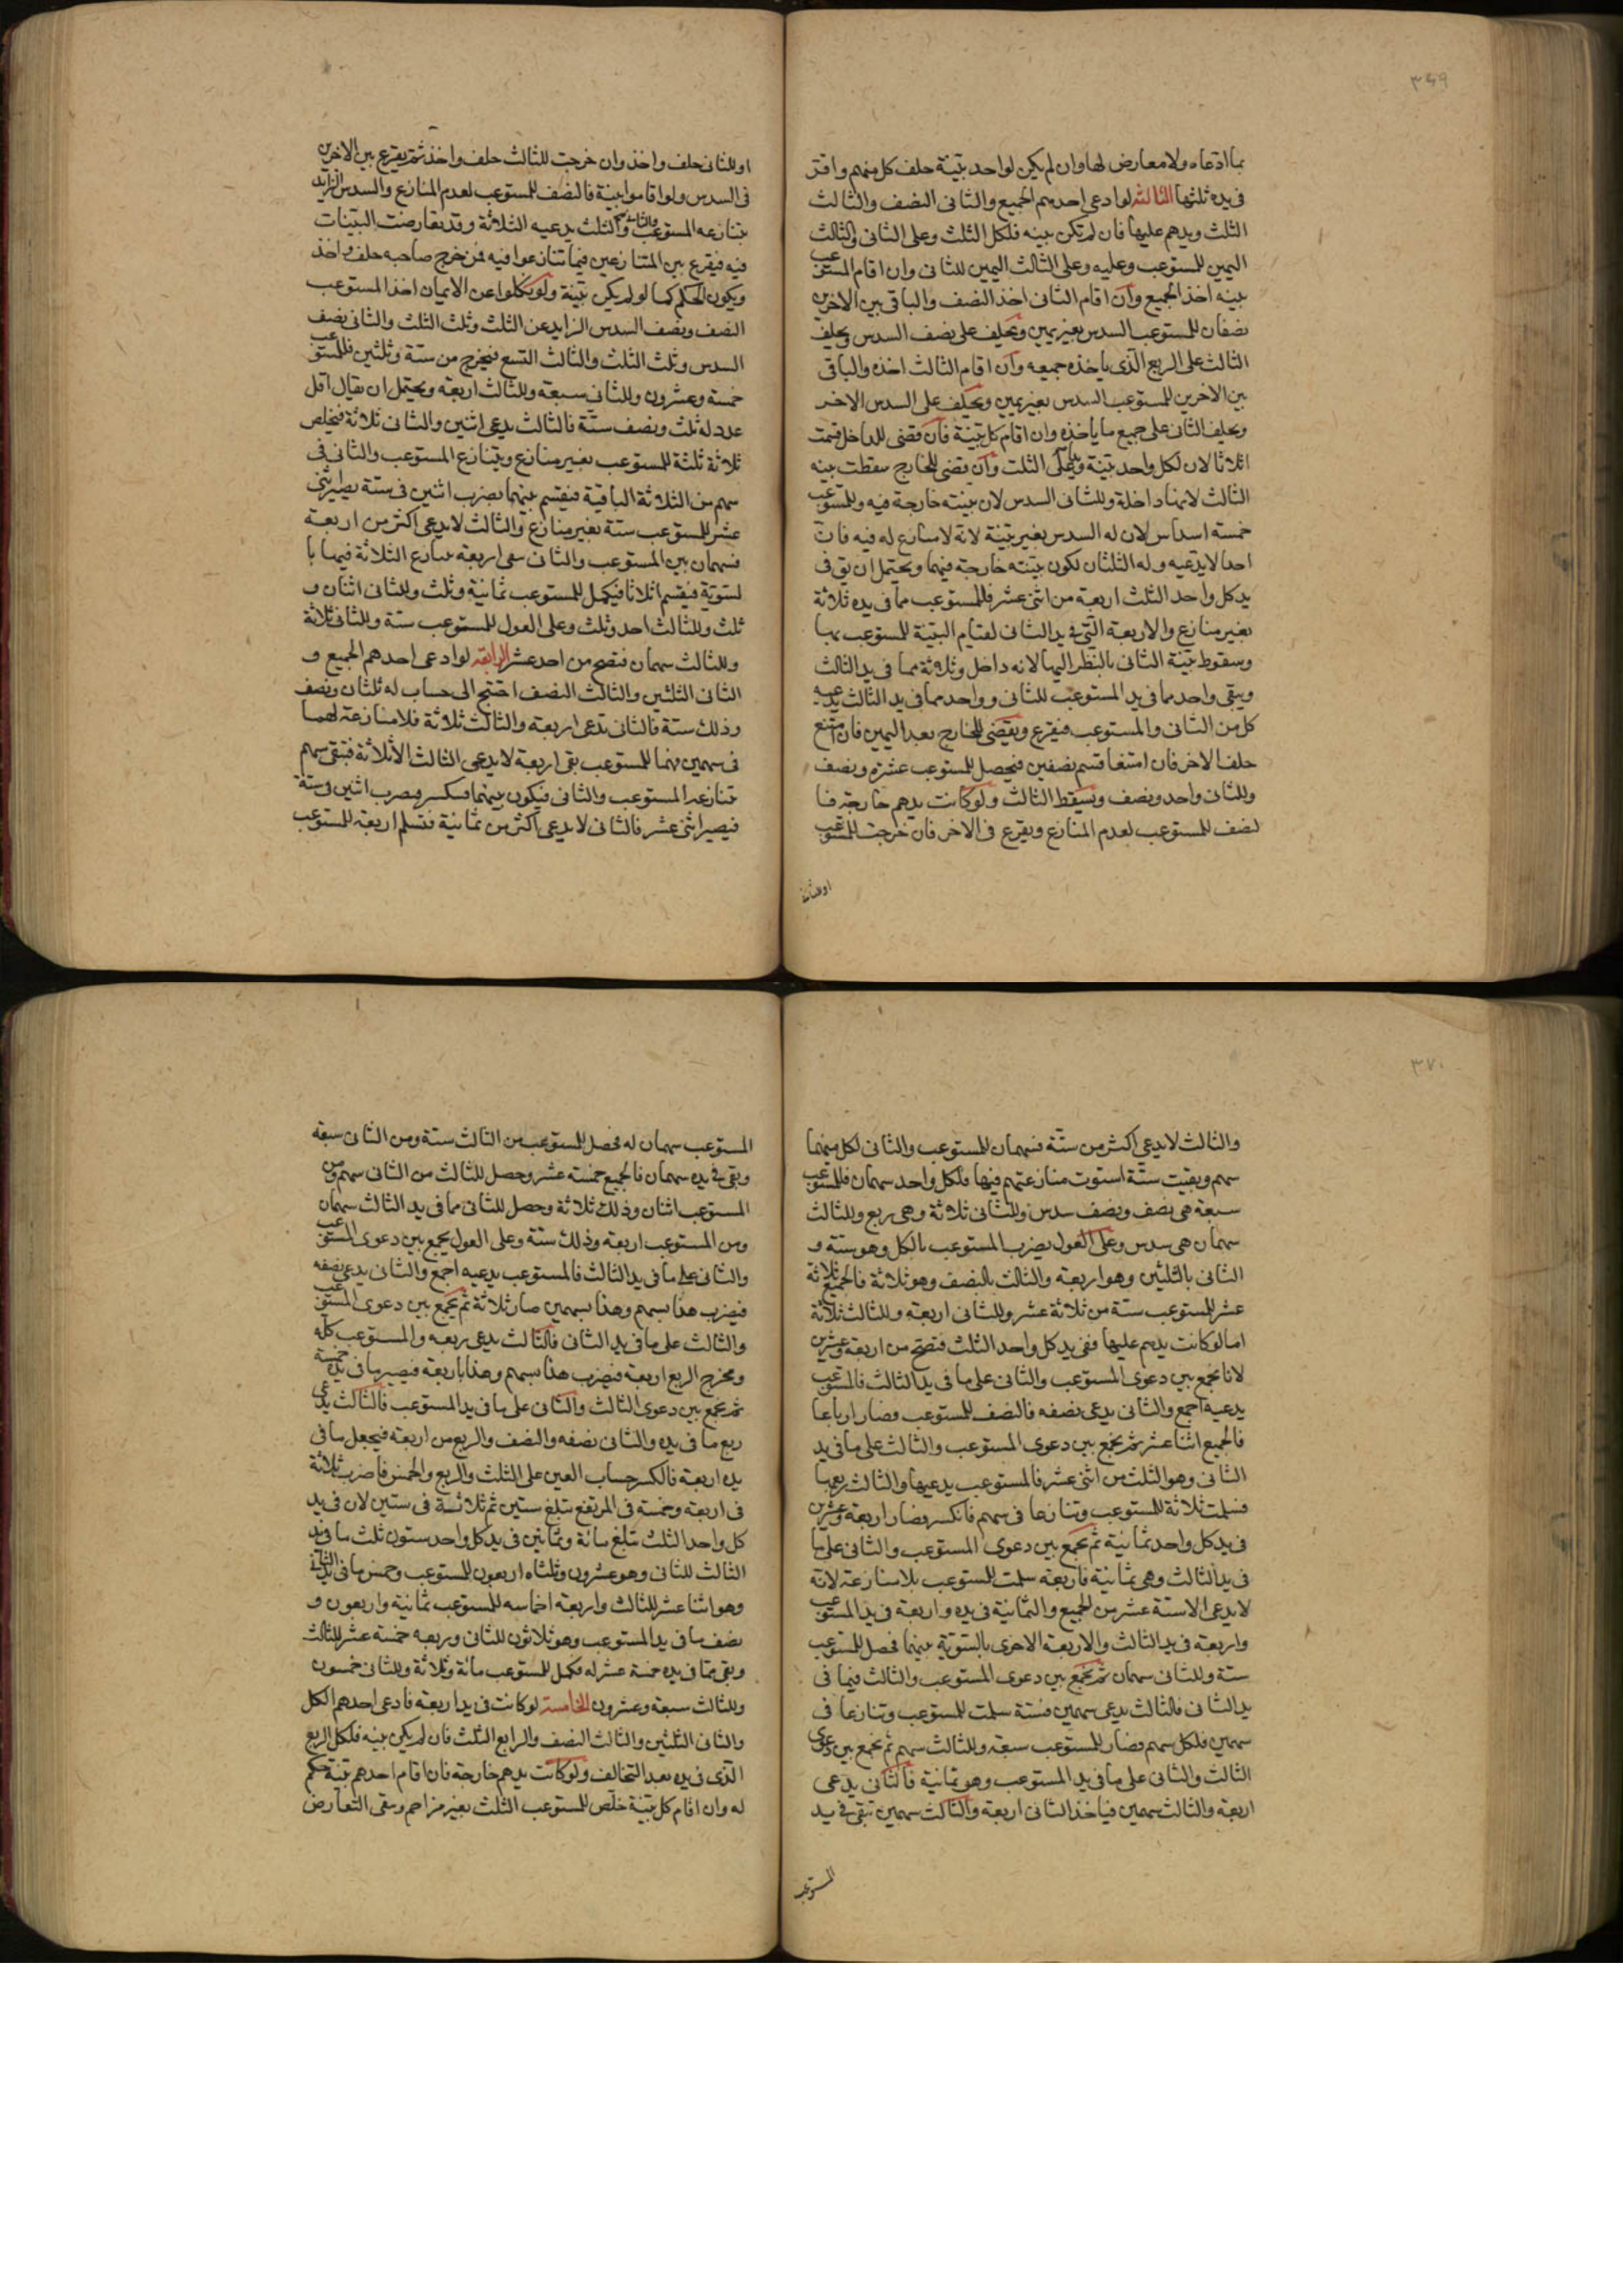 ٣٦٩
بما ادعاه ولا معارض لها وان لم يكن لواحد بينة حلف كل منهم واقر
في يده ثلثها الثالثة لو ادعى احدهم الجميع والثاني النصف والثالث
الثلث ويدهم عليها فان لم تكن بينه فلكل الثلث وعلى الثاني والثالث
اليمين للمستوعب وعليه وعلى الثالث اليمين للثاني وان اقام المستوعب
بينه اخذ الجميع وان اقام الثاني اخذ النصف والباقي بين الاخرين
نصفان للمستوعب السدس بغير يمين ويحلف على نصف السدس ويحلف
الثالث على الربع الذي ياخذه جميعه وان اقام الثالث اخذه والباقي
بين الاخرين للمستوعب السدس بغير يمين ويحلف على السدس الاخر
ويحلف الثاني على جميع ما ياخذه وان اقام كل بينة فان قضى للداخل قسمت
اثلاثا لان لكل واحد بينة ويدا على الثلث وان قضى للخارج سقطت بينه
الثالث لانها داخلة وللثاني السدس لان بينته خارجة فيه وللمستوعب
خمسة اسداس لان له السدس بغير بينة لانه لا منازع له فيه فان
احدا لا يدعيه وله الثلثان لكون بينته خارجة فيهما ويحتمل ان يق في
يد كل واحد الثلث اربعة من اثني عشر فللمستوعب مما في يده ثلاثة
بغير منازع والاربعة التي في يد الثاني لقيام البينة للمستوعب بها
وسقوط بينة الثاني بالنظر اليها لانه داخل وثلاثة مما في يد الثالث
ويبقى واحد مما في يد المستوعب للثاني وواحد مما في يد الثالث يدعيه
كل من الثاني والمستوعب فيقرع ويقضى للخارج بعد اليمين فان امتنع
حلف الاخر فان امتنعا قسم نصفين فيحصل للمستوعب عشرة ونصف
وللثاني واحد ونصف ويسقط الثالث ولو كانت يدهم خارجة فا
لنصف للمستوعب لعدم المنازع ويقرع في الاخر فان خرجت للمستوعب
او للثاني
او للثاني حلف واخذ وان خرجت للثالث حلف واخذ ثم يقرع بين الاخرين
في السدس ولو اقاموا بينة فالنصف للمستوعب لعدم المنازع والسدس الزايد
يتنازعه المستوعب والثاني والثلث يدعيه الثلاثة وقد تعارضت البينات
فيه فيقرع بين المتنازعين فيما تنازعوا فيه فمن خرج صاحبه حلف واخذ
ويكون الحكم كما لو لم يكن بينة ولو نكلوا عن الايمان اخذ المستوعب
النصف ونصف السدس الزايد عن الثلث وثلث الثلث والثاني نصف
السدس وثلث الثلث والثالث التسع فيخرج من ستة وثلثين فللمستوعب
خمسة وعشرون وللثاني سبعة وللثالث اربعة ويحتمل ان يقال اقل
عدد له ثلث ونصف ستة فالثالث يدعى اثنين والثاني ثلاثة فيخلص
ثلاثة ثلثة للمستوعب بغير منازع ويتنازع المستوعب والثاني في
سهم من الثلاثة الباقية فيقسم بينهما يضرب اثنين في ستة يصير اثني
عشر للمستوعب ستة بغير منازع والثالث لا يدعى اكثر من اربعة
فسهمان بين المستوعب والثاني بقى اربعة تنازع الثلاثة فيها با
لسوية فيقسم اثلاثا فيكمل للمستوعب ثمانية وثلث وللثاني اثنان و
ثلث وللثالث احد وثلث وعلى العول للمستوعب ستة وللثاني ثلاثة
وللثالث سهمان فتصح من احد عشر الرابعة لو ادعى احدهم الجميع و
الثاني الثلثين والثالث النصف احتيج الى حساب له ثلثان ونصف
وذلك ستة فالثاني يدعى اربعة والثالث ثلاثة فلا منازعة لهما
في سهمين فهما للمستوعب بقى اربعة لا يدعى الثالث الا ثلاثة فبقى سهم
تنازعه المستوعب والثاني فيكون بينهما فينكسر فيضرب اثنين في ستة
فيصير اثني عشر فالثاني لا يدعى اكثر من ثمانية فتسلم اربعة للمستوعب
٣٧٠
والثالث لا يدعى اكثر من ستة فسهمان للمستوعب والثاني لكل منهما
سهم وبقيت ستة استوت منازعتهم فيها فلكل واحد سهمان فللمستوعب
سبعة هي نصف ونصف سدس وللثاني ثلاثة وهي ربع وللثالث
سهمان هي سدس وعلى العول يضرب المستوعب بالكل وهو ستة و
الثاني بالثلثين وهو اربعة والثالث بالنصف وهو ثلاثة فالجميع ثلاثة
عشر للمستوعب ستة من ثلاثة عشر وللثاني اربعة وللثالث ثلاثة
اما لو كانت يدهم عليها ففي يد كل واحد الثلث فتصح من اربعة وعشرين
لانا نجمع بين دعوى المستوعب والثاني على ما في يد الثالث فالمستوعب
يدعيه اجمع والثاني يدعى نصفه فالنصف للمستوعب فصار ارباعا
فالجميع اثنا عشر ثم يجمع بين دعوى المستوعب والثالث على ما في يد
الثاني وهو الثلث من اثني عشر فالمستوعب يدعيها والثالث ربعها
فسلمت ثلاثة للمستوعب وتنازعا في سهم فانكسر فصار اربعة وعشرين
في يد كل واحد ثمانية ثم يجمع بين دعوى المستوعب والثاني على ما
في يد الثالث وهي ثمانية فاربعة سلمت للمستوعب بلا منازعة لانه
لا يدعى الا ستة عشر من الجميع والثمانية في يده واربعة في يد المستوعب
واربعة في يد الثالث والاربعة الاخرى بالسوية بينهما فحصل للمستوعب
ستة وللثاني سهمان ثم يجمع بين دعوى المستوعب والثالث فيما في
يد الثاني فالثالث يدعى سهمين فستة سلمت للمستوعب وتنازعا في
سهمين فلكل سهم فصار للمستوعب سبعة وللثالث سهم ثم يجمع بين دعوى
الثالث والثاني على ما في يد المستوعب وهو ثمانية فالثاني يدعى
اربعة والثالث سهمين فياخذ الثاني اربعة والثالث سهمين تبقى في يد
المستوعب
المستوعب سهمان له فحصل للمستوعب من الثالث ستة ومن الثاني سبعة
وبقى في يده سهمان فالجميع خمسة عشر وحصل للثالث من الثاني سهم ومن
المستوعب اثنان وذلك ثلاثة وحصل للثاني مما في يد الثالث سهمان
ومن المستوعب اربعة وذلك ستة وعلى العول يجمع بين دعوى المستوعب
والثاني على ما في يد الثالث فالمستوعب يدعيه اجمع والثاني يدعى نصفه
فيضرب هذا بسهم وهذا بسهمين صار ثلاثة ثم يجمع بين دعوى المستوعب
والثالث على ما في يد الثاني فالثالث يدعى ربعه والمستوعب كله
ومخرج الربع اربعة فيضرب هذا بسهم وهذا باربعة فيصير ما في يده خمسة
ثم يجمع بين دعوى الثالث والثاني على ما في يد المستوعب فالثالث يدعى
ربع ما في يده والثاني نصفه والنصف والربع من اربعة فيجعل ما في
يده اربعة فانكسر حساب العين على الثلث والربع والخمس فاضرب ثلاثة
في اربعة وخمسة في المرتفع تبلغ ستين ثم ثلاثة في ستين لان في يد
كل واحد الثلث تبلغ مائة وثمانين في يد كل واحد ستون ثلث ما في يد
الثالث للثاني وهو عشرون وثلثاه اربعون للمستوعب وخمس ما في يد الثاني
وهو اثنا عشر للثالث واربعة اخماسه للمستوعب ثمانية واربعون و
نصف ما في يد المستوعب وهو ثلاثون للثاني وربعه خمسة عشر للثالث
وبقى مما في يده خمسة عشر له فكمل للمستوعب مائة وثلاثة وللثاني خمسون
وللثالث سبعة وعشرون الخامسة لو كانت في يد اربعة فادعى احدهم الكل
والثاني الثلثين والثالث النصف والرابع الثلث فان لم يكن بينه فلكل الربع
الذي في يده بعد التحالف ولو كانت يدهم خارجة فان اقام احدهم بينة حكم
له وان اقام كل بينة خلص للمستوعب الثلث بغير مزاحم وبقى التعارض